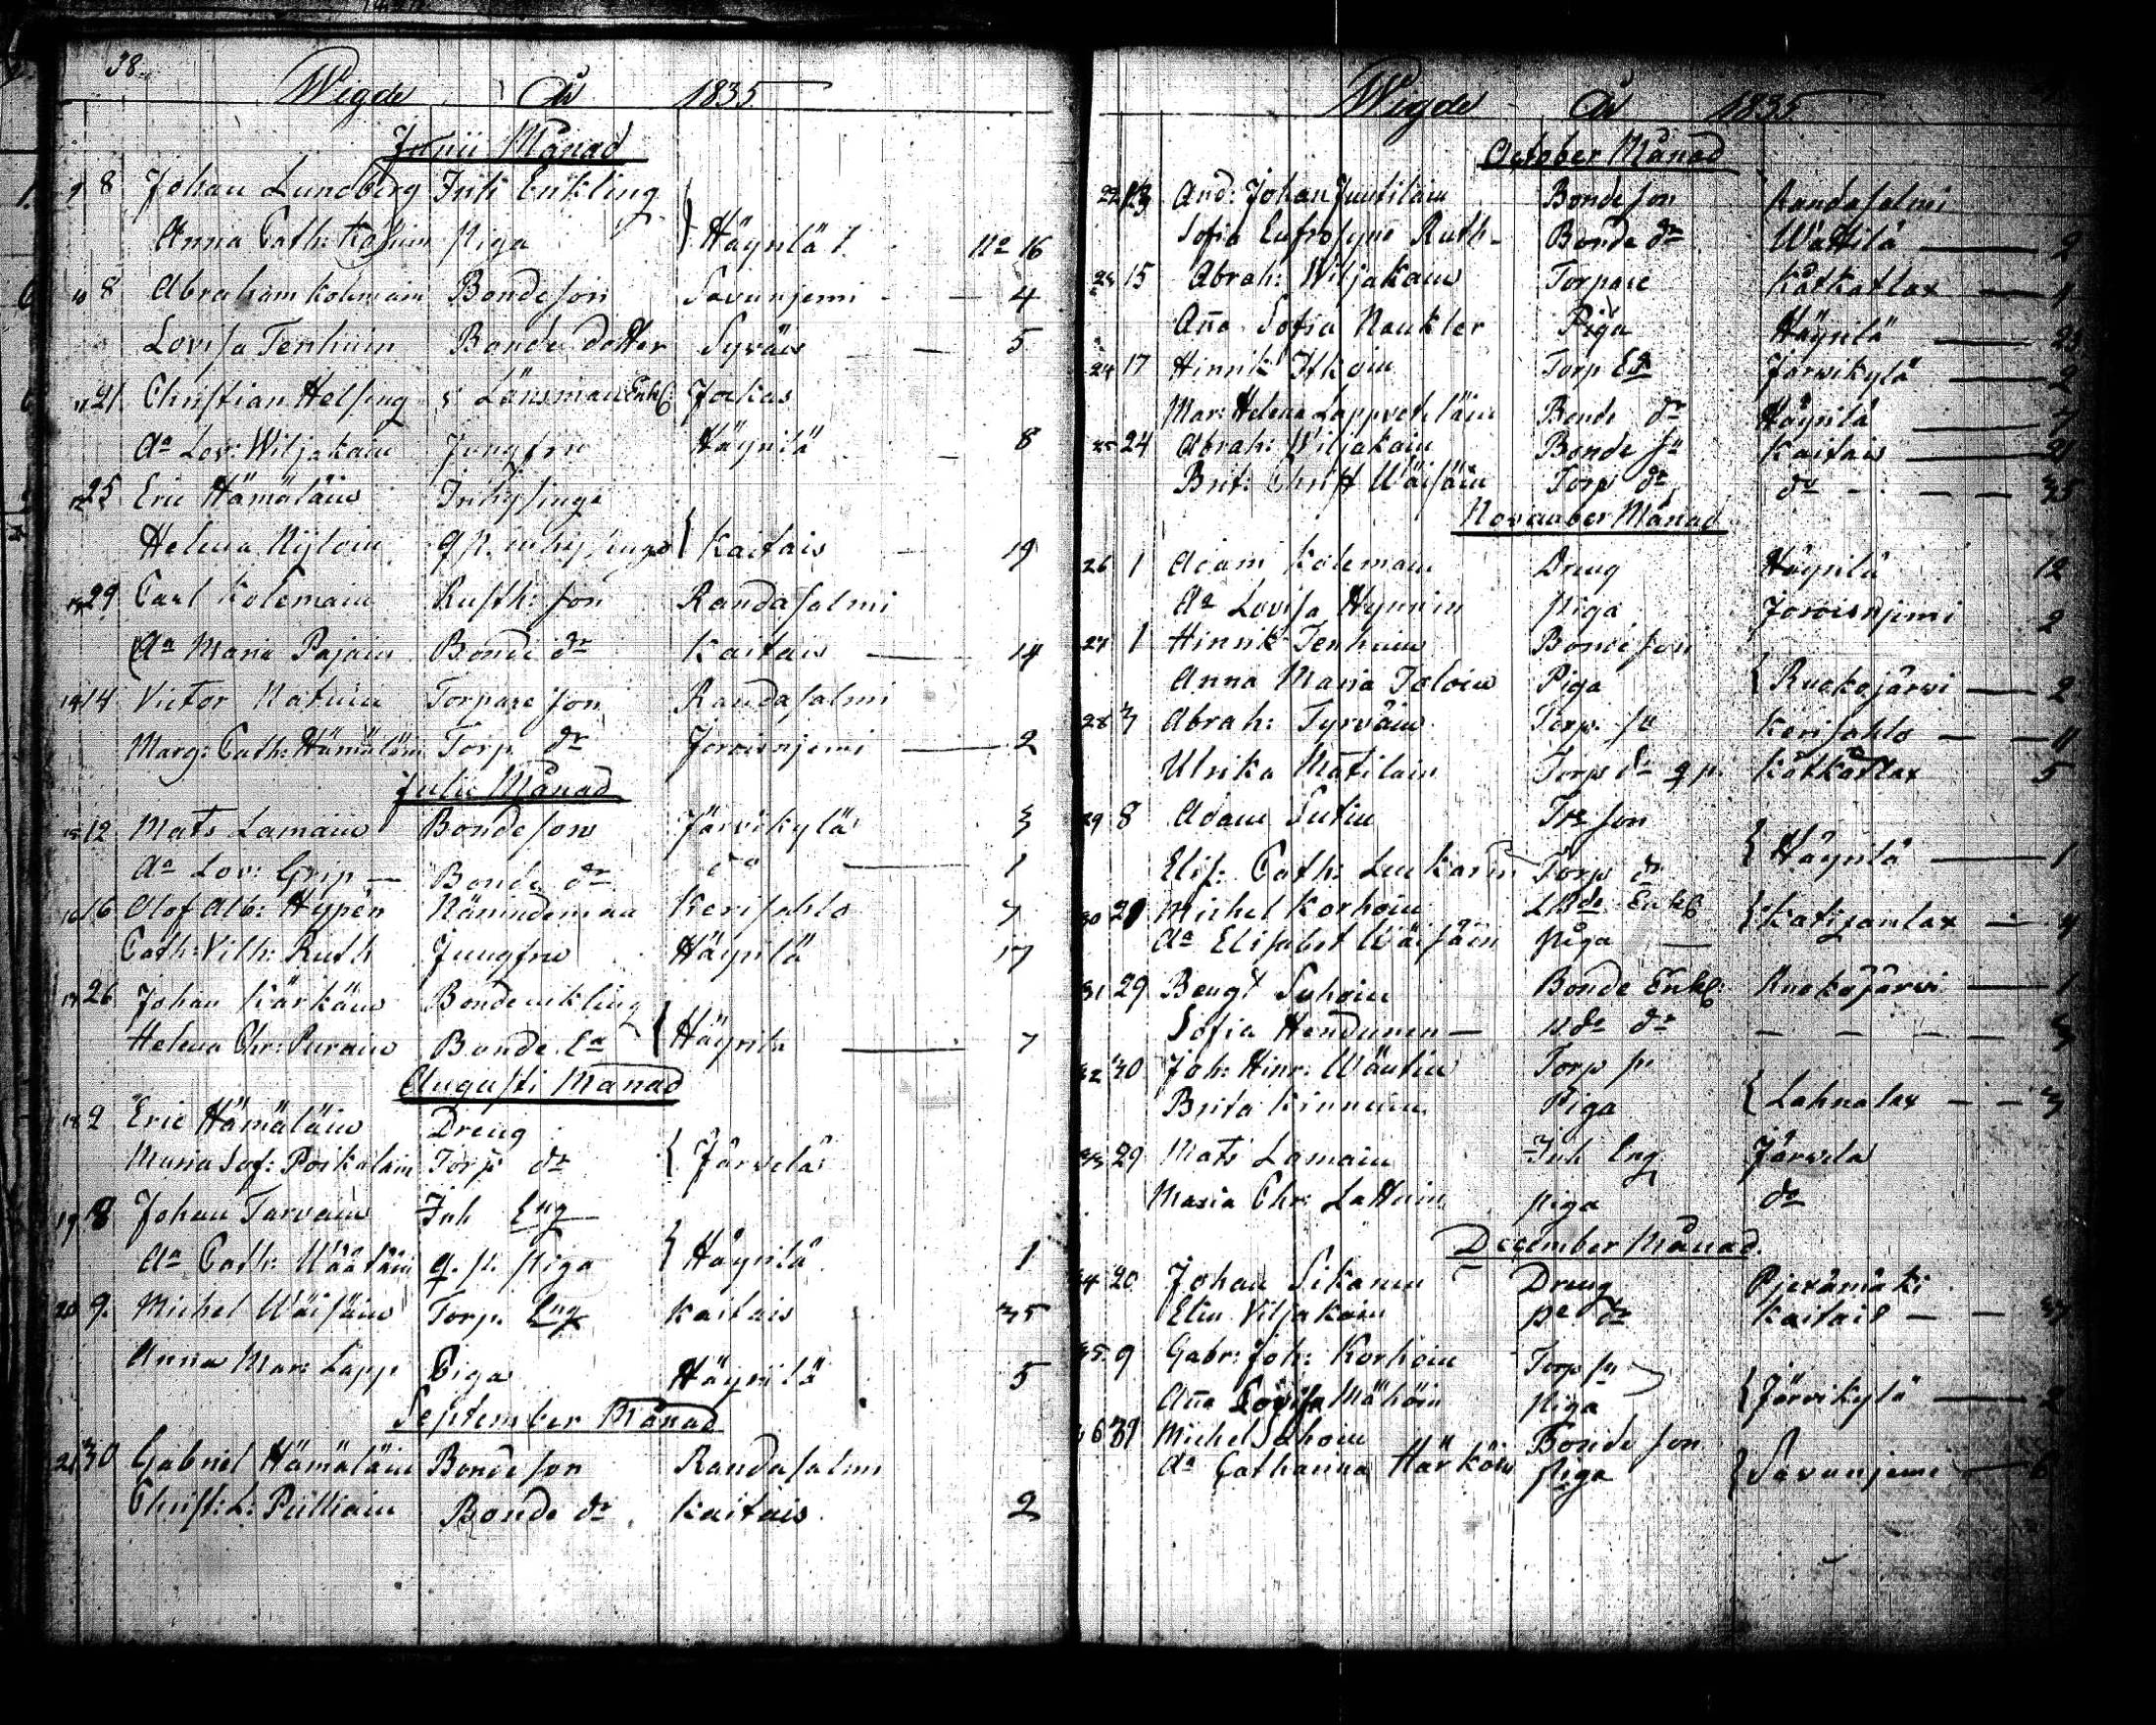 38.
Wigde År 1835
Junii Månad
9 8 Johan Lundberg Inh Enkling
Anna Cath: Piga Häyrilä 1. 112 16
10 8 Abraham Kolemain Bondeson Savunjemi - 4
Lovisa Tenhuin Bonde dotter Syväis - 5
11 21 Christian Helsing Länsman Enkl: Jockas
Aa Lov: Wiljakain Jungfru Häyrilä - 8
12 25 Eric Hämäläin Inhysinge
Helena qp. inhysinge Kaitais - 19
13 29 Carl Kolemain Rusth: son Randasalmi
Aa Maria Pajain Bonde dr Kaitais - 14
14 14 Victor Natuin Torpare son Randasalmi
Marg: Cath: Hämäläin Torp. dr Joroisnjemi - 2
Julii Månad
15 12 Mats Lamain Bondeson Järvikylä 3
Aa Lov: Grip - Bonde dr do - 1
16 16 Olof Alb: Hypén Kerisahlo 7
Cath: Vilh: Ruth Jungfru Häyrilä 17
17 26 Johan Kärkäin Bondenkling
Helena Chr: Purain Bonde Ea Häyrilä - 7
Augusti Månad
18 2 Eric Hämäläin Dreng
Maria Sof: Poikolain Torp dr Järvelä
19 8 Johan Tarvain Inh Eng
Aa Cath: Väätäin q. p. piga Häyrilä 1
20 9. Michel Wäisäin Torp. Eng Kaitais 35
Anna Mar: Lapp Piga Häyrilä 5
September Månad
21 30 Gabriel Hämäläin Bondeson Randasalmi
Christ: L: Pulliain Bonde dr. Kaitais 2
Wigde År 1835
October Månad
22 13 And: Johan Juutilain Bondeson Randasalmi
Sofia Eufrosyne Ruth - Bonde dr Wättilä - 2
23 15 Abrah: Wiljakain Torpare Kåtkatlax - 1
Aña Sofia Naukler Piga Häyrilä - 23
24 17 Hinrik Itkoin Torp Es Järvikylä - 2
Mar: Helena Lappveteläin Bonde dr Häyrilä - 7
25 24 Abrah: Wiljakain Bonde sn Kaitais - 21
Brit: Christ Wäisäin Torp dr do - - - 35
November Månad
26 1 Adam Kolemain Dreng Häyrilä 12
Aa Lovisa Hynnin piga Joroisnjemi 2
27 1 Hinrik Tenhuin Bondeson
Anna Maria Toloin Piga Ruokojärvi - 2
28 3 Abrah: Tyrväin Torp. sn Kerisahlo - - 11
Ulrika Matilain Torp dr q p. Kåtkatlax 5
29 8 Adam Sutin Tre son
Elis: Cath: Luukarin Torp dr Häyrilä - 1
30 Michel Korhoin Enkl: Katizanlax - 4
Aa Elisabet Wäisäin piga -
31 29 Bengt Suhoin Bonde Enkl: Ruokojärvi - 1
Sofia Hendunen - dr - - - - 3
32 30 Joh: Hinr: Wäntin Torp sn
Brita Kinnuin Piga Lahnalax - - 3
33 29 Mats Lamain Inh Eng Järvelä
Maria Chr: Lattuin piga do
December Månad.
34 20 Johan Sikanen Dreng Pjexämäki
Elin Viljakain Kaitais - - 37
35 9 Gabr: Joh: Korhoin Torp sn
Aña Lovisa Mähöin piga Järvikylä - 2
36 31 Michel Sahoin Bonde son
Aa Catharina Härköin piga Savunjemi - 6